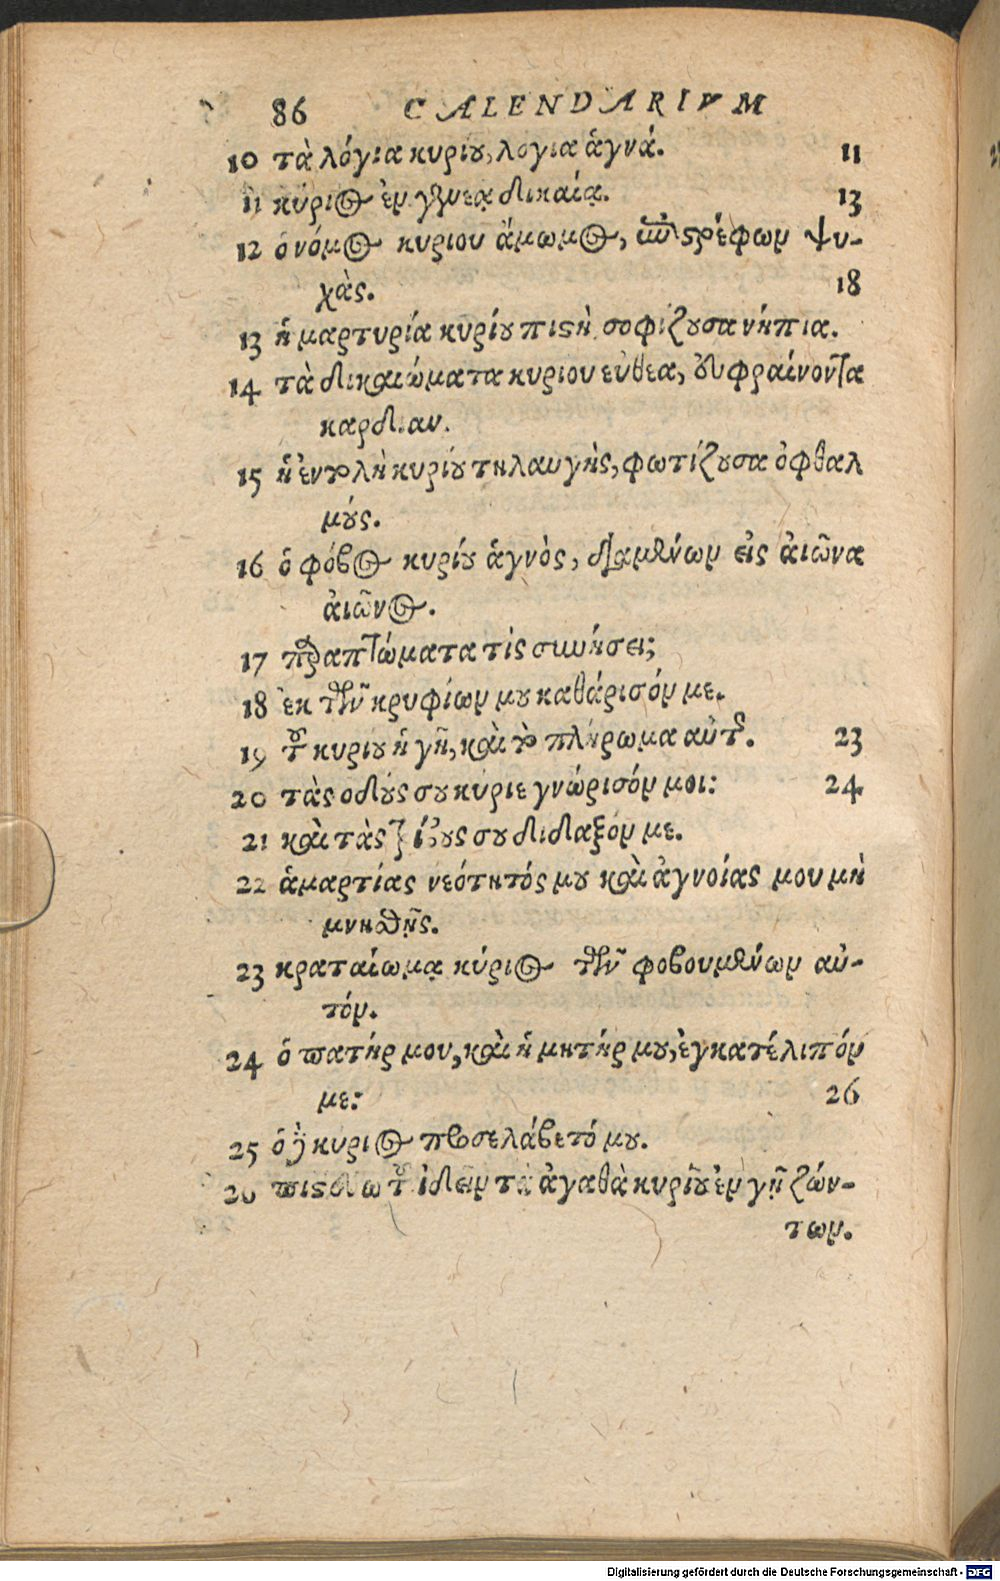 86 CALENDARIVM
10 τὰ λόγια κυρίου, λογια ἁγνά. 11
11 κύριος ἐν γενεᾷ δικαίᾳ. 13
12 ὁ νόμος κυριου ἄμωμος, ἐπιστρέφων ψυ-
χὰς. 18
13 ἡ μαρτυρία κυρίου πιστὴ σοφίζουσα νήπια.
14 τὰ δικαιώματα κυριου εὐθεα, εὐφραίνοντα
καρδίαν.
15 ἡ ἐντολὴ κυρίου τηλαυγὴς, φωτίζουσα ὀφθαλ
μούς.
16 ὁ φόβος κυρίου ἁγνὸς, διαμένων εἰς ἀιῶνα
ἀιῶνος.
17 παραπτώματα τίς συνήσει;
18 ἐκ τῶν κρυφίων μου καθάρισόν με.
19 τοῦ κυρίου ἡ γῆ, καὶ το πλήρωμα αὐτῆς. 23
20 τὰς οδούς σου κύριε γνώρισόν μοι: 24
21 καὶ τὰς τρίβους σου δίδαξόν με.
22 ἁμαρτίας νεότητός μου καὶ ἀγνοίας μου μὴ
μνησθῇς.
23 κραταίωμα κύριος τῶν φοβουμένων αὐ-
τόν.
24 ὁ πατήρ μου, καὶ ἡ μητήρ μου, ἐγκατέλιπόν
με: 26
25 ὁ δὲ κύριος προσελάβετό μου.
26 πιστεύω τοῦ ἰδεῖν τὰ ἀγαθὰ κυρίου ἐν γῇ ζών-
των.
Digitalisierung gefördert durch die Deutsche Forschungsgemeinschaft - DFG